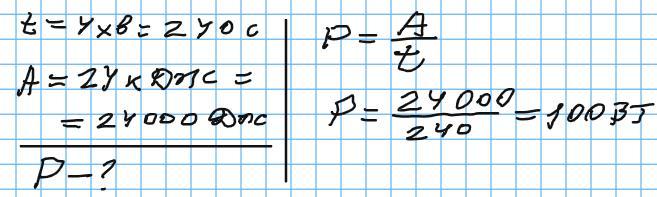 t = 4 хв = 240 с
A = 24 кДж =
= 24000 Дж
P - ?
P = A/t
P = 24000/240 = 100 Вт